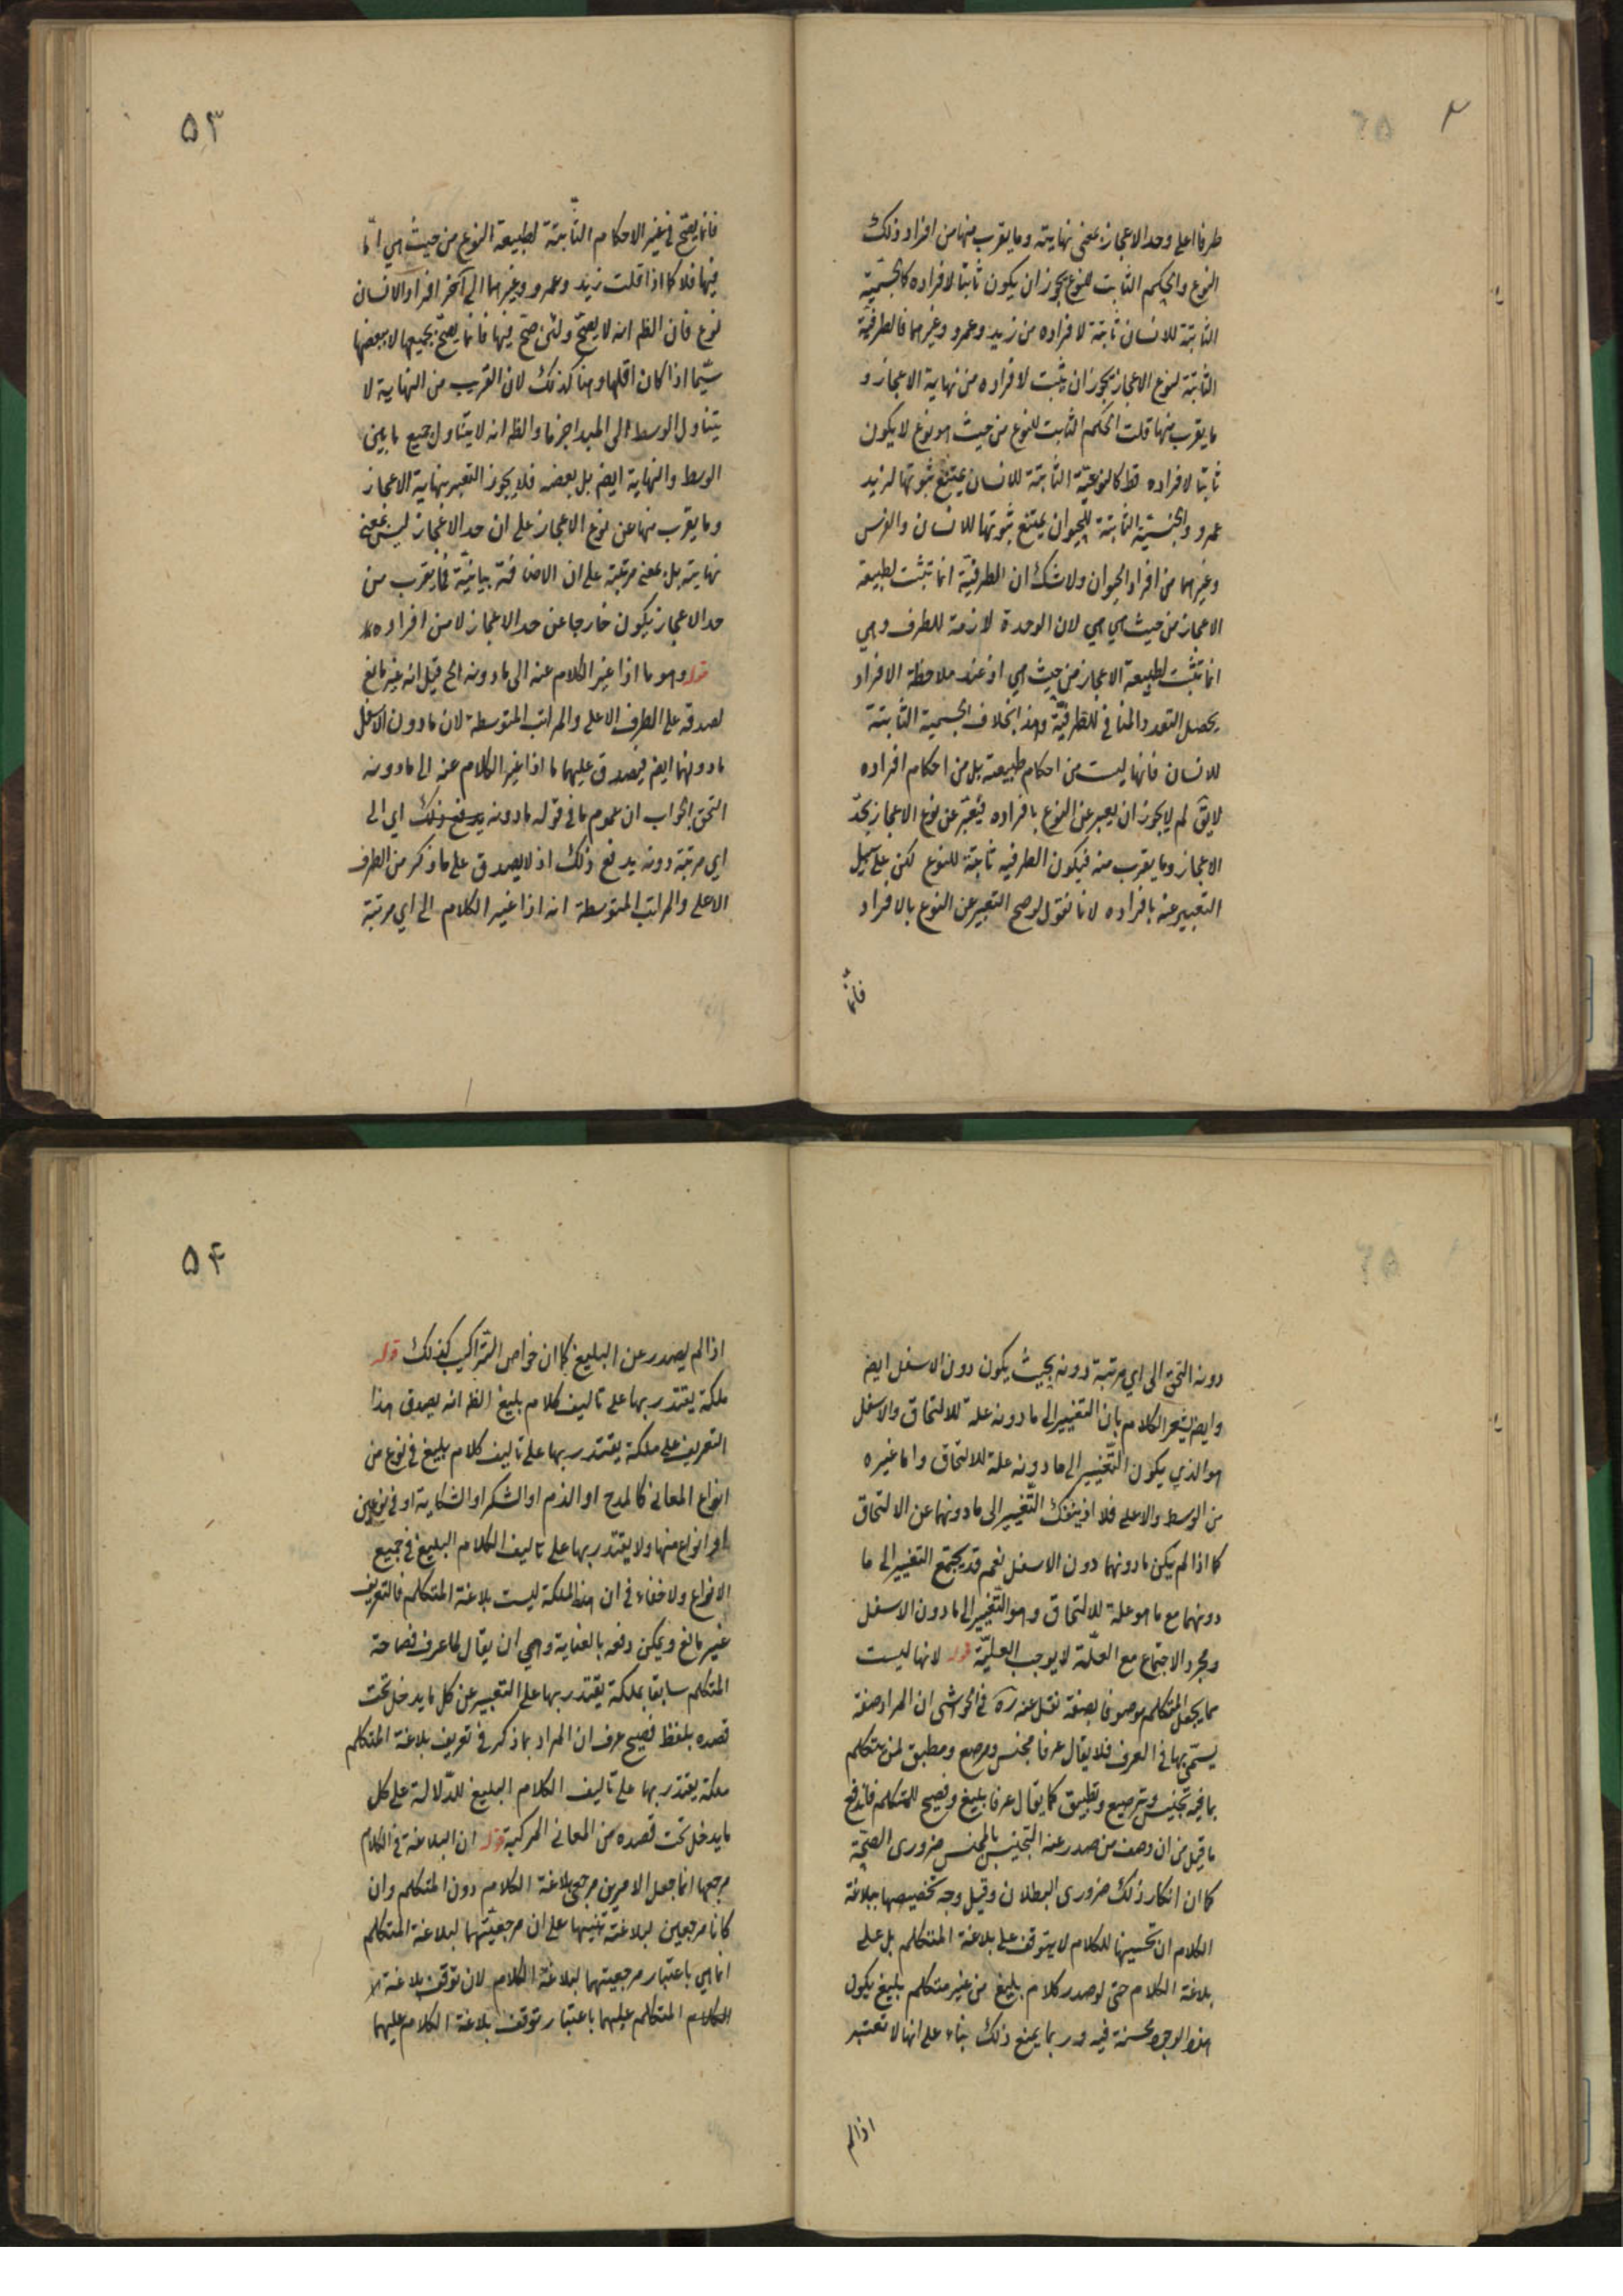 طرفا اعلى وحد الاعجاز بمعنى نهايته وما يقرب منها من افراد ذلك
النوع والحكم الثابت للنوع يجوز ان يكون ثابتا لافراده كالجسمية
الثابتة للانسان ثابتة لافراده من زيد وعمرو وغيرهما فالطرفية
الثابتة لنوع الاعجاز يجوز ان يثبت لافراده من نهاية الاعجاز و
ما يقرب منها قلت الحكم الثابت للنوع من حيث هو نوع لا يكون
ثابتا لافراده قط كالنوعية الثابتة للانسان يمتنع ثبوتها لزيد
عمرو والجنسية الثابتة للحيوان يمتنع ثبوتها للانسان والفرس
وغيرهما من افراد الحيوان ولا شك ان الطرفية انما تثبت لطبيعة
الاعجاز من حيث هي هي لان الوحدة لازمة للطرف وهي
انما تثبت لطبيعة الاعجاز من حيث هي اذ عند ملاحظة الافراد
يحصل التعدد المنافي للطرفية وهذا بخلاف الجسمية الثابتة
للانسان فانها ليست من احكام طبيعته بل من احكام افراده
لايق لم لا يجوز ان يعبر عن النوع بافراده فيعبر عن نوع الاعجاز بحد
الاعجاز وما يقرب منه فيكون الطرفية ثابتة للنوع لكن على سبيل
التعبير عنه بافراده لانا نقول لو صح التعبير عن النوع بالافراد
فانما
٥٣
فانما يصح في غير الاحكام الثابتة لطبيعة النوع من حيث هي اما
فيها فلا كما اذا قلت زيد وعمرو وغيرهما الى آخر افراد الانسان
نوع فان الظ انه لا يصح ولئن صح فيها فانما يصح بجميعها لا ببعضها
سيما اذا كان اقلها وهنا كذلك لان القريب من النهاية لا
يتناول الوسط الى المبدا جزما والظ انه لا يتناول جميع ما بين
الوسط والنهاية ايض بل بعضه فلا يجوز التعبير بنهاية الاعجاز
وما يقرب منها عن نوع الاعجاز على ان حد الاعجاز ليس بمعنى
نهايته بل بمعنى مرتبة على ان الاضافة بيانية فما يقرب من
حد الاعجاز يكون خارجا عن حد الاعجاز لا من افراده
قوله وهو ما اذا غير الكلام عنه الى ما دونه الخ قيل انه غير مانع
لصدقه على الطرف الاعلى والمراتب المتوسطة لان ما دون الاسفل
ما دونهما ايض فيصدق عليهما ما اذا غير الكلام عنه الى ما دونه
التحق الجواب ان عموم ما في قوله ما دونه يدفع ذلك اي الى
اي مرتبة دونه يدفع ذلك اذ لا يصدق على ما ذكر من الطرف
الاعلى والمراتب المتوسطة انه اذا غير الكلام الى اي مرتبة
دونه التحق الى اي مرتبة دونه بحيث يكون دون الاسفل ايض
وايض يشعر الكلام بان التغيير الى ما دونه علة للالتحاق والاسفل
هو الذي يكون التغيير الى ما دونه علة للالتحاق واما غيره
من الوسط والاعلى فلا اذ ينفك التغيير الى ما دونهما عن الالتحاق
كما اذا لم يكن ما دونهما دون الاسفل نعم قد يجتمع التغيير الى ما
دونهما مع ما هو علة للالتحاق وهو التغيير الى ما دون الاسفل
ومجرد الاجتماع مع العلة لا يوجب العلية قوله لانها ليست
مما يجعل المتكلم موصوفا بصفة نقل عنه ره في الحواشي ان المراد صفة
يسمى بها في العرف فلا يقال عرفا مجنس ومرصع ومطبق لمن يتكلم
بما فيه تجنيس وترصيع وتطبيق كما يقال عرفا بليغ وفصيح للمتكلم فاندفع
ما قيل من ان وصف من صدر عنه التجنيس بالمجنس ضروري الصحة
كما ان انكار ذلك ضروري البطلان وقيل وجه تخصيصها ببلاغة
الكلام ان تحسينها للكلام لا يتوقف على بلاغة المتكلم بل على
بلاغة الكلام حتى لو صدر كلام بليغ من غير متكلم بليغ يكون
هذه الوجوه محسنة فيه وربما يمنع ذلك بناء على انها لا تعتبر
اذا لم
٥٤
اذا لم يصدر عن البليغ كما ان خواص التراكيب كذلك قوله
ملكة يقتدر بها على تاليف كلام بليغ الظ انه يصدق هذا
التعريف على ملكة يقتدر بها على تاليف كلام بليغ في نوع من
انواع المعاني كالمدح او الذم او الشكر او الشكاية او في نوعين
او انواع منها ولا يقتدر بها على تاليف الكلام البليغ في جميع
الانواع ولا خفاء في ان هذه الملكة ليست بلاغة المتكلم فالتعريف
غير مانع ويمكن دفعه بالعناية وهي ان يقال لما عرف فصاحة
المتكلم سابقا بملكة يقتدر بها على التعبير عن كل ما يدخل تحت
قصده بلفظ فصيح عرف ان المراد بما ذكر في تعريف بلاغة المتكلم
ملكة يقتدر بها على تاليف الكلام البليغ للدلالة على كل
ما يدخل تحت قصده من المعاني المركبة قوله ان البلاغة في الكلام
مرجعها انما جعل الامرين مرجعي بلاغة الكلام دون المتكلم وان
كانا مرجعين لبلاغته تنبيها على ان مرجعيتهما لبلاغة المتكلم
انما هي باعتبار مرجعيتهما لبلاغة الكلام لان توقف بلاغة
الكلام المتكلم عليهما باعتبار توقف بلاغة الكلام عليهما